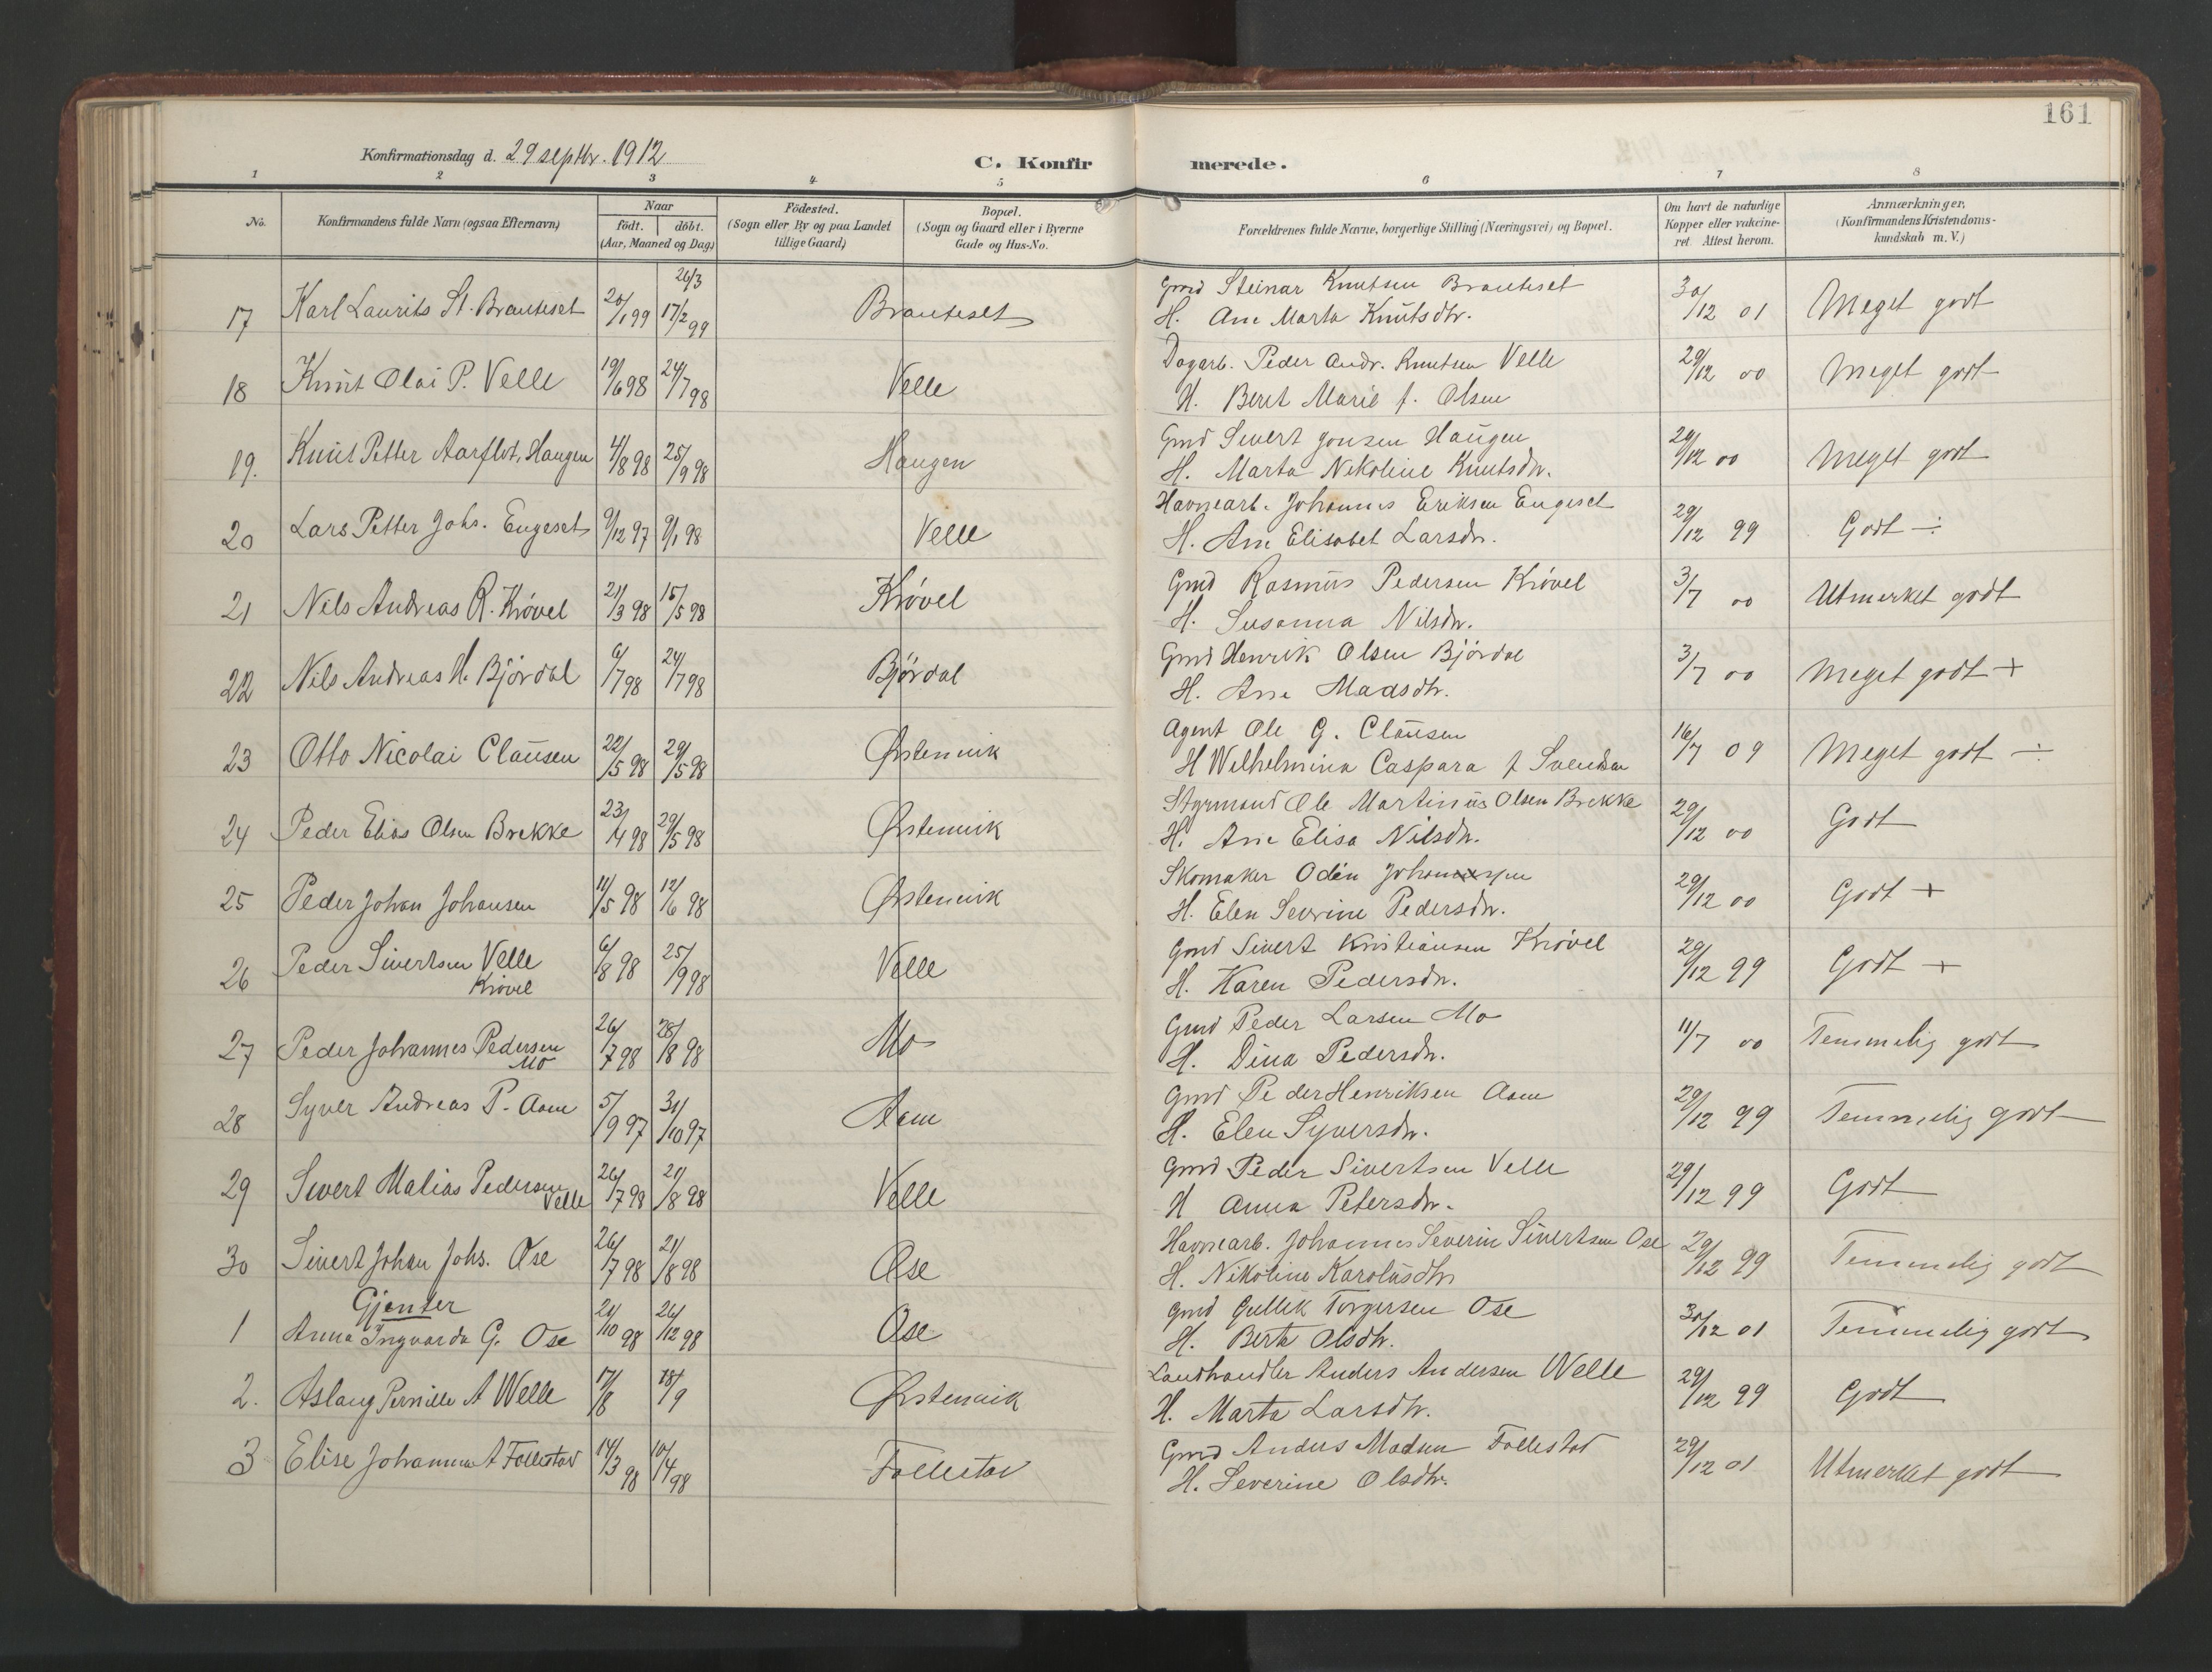 161
Konfirmationsdag d. 29 septbr. 1912
C. Konfirmerede.
1 2 3 4 5 6 7 8
No.
Konfirmandens fulde Navn (ogsaa Efternavn)
Naar
födt. döbt.
(Aar, Maaned og Dag)
Födested.
(Sogn eller By og paa Landet
tillige Gaard)
Bopæl.
(Sogn og Gaard eller i Byerne
Gade og Hus-No.
Forældrenes fulde Navne, borgerlige Stilling (Næringsvei) og Bopæl.
Om havt de naturlige
Kopper eller vakcine-
ret. Attest herom.
Anmærkninger,
(Konfirmandens Kristendoms-
kundskab m. V.)
17 Karl Laurits St. Brauteset 20/1 99 26/3 17/2 99 Brauteset Gmd Steinar Knutsen Brauteset 30/12 01 Meget godt
H. Ane Marta Knutsdtr.
18 Knut Olai P. Velle 19/6 98 24/7 98 Velle Dagarb. Peder Andr. Knutsen Velle 29/12 00 Meget godt
H. Beret Marie f. Olsen
19. Knut Petter Aarflot, Haugen 4/8 98 25/9 98 Haugen Gmd Sivert Jonsen Haugen 29/12 00 Meget godt
H. Marta Nikoline Knutsdtr.
20 Lars Petter Johs. Engeset 9/12 97 9/1 98 Velle Havnearb. Johannes Eriksen Engeset 29/12 99 Godt ÷
H. Ane Elisabet Larsdtr.
21 Nils Andreas R. Krövel 21/3 98 15/5 98 Krövel Gmd Rasmus Pedersen Krövel 3/7 00 Utmerket godt
H. Susanna Nilsdtr.
22 Nils Andreas H. Björdal 6/7 98 24/7 98 Björdal Gmd Henrik Olsen Björdal 3/7 00 Meget godt +
H. Ane Madsdtr.
23 Otto Nicolai Clausen 22/5 98 29/5 98 Östenvik Agent Ole G. Clausen 16/7 09 Meget godt ÷
H Wilhelmina Caspara f Svendsen
24 Peder Elias Olsen Brekke 23/4 98 29/5 98 Östenvik Styrmand Ole Martinus Olsen Brekke 29/12 00 Godt
H. Ane Elisa Nilsdtr.
25 Peder Johan Johansen 11/5 98 12/6 98 Östenvik Skomaker Odin Johansen 29/12 00 Godt +
H. Elen Severine Pedersdtr.
26 Peder Sivertsen Velle 6/8 98 25/9 98 Velle Gmd Sivert Kristiansen Krövel 29/12 99 Godt +
Krövel H. Karen Pedersdtr.
27 Peder Johannes Pedersen 26/7 98 28/8 98 Mo Gmd Peder Larsen Mo 11/7 00 Temmelig godt
Mo H. Dina Pedersdtr.
28 Syver Andreas P. Aam 5/9 97 31/10 97 Aam Gmd Peder Henriksen Aam 29/12 99 Temmelig godt
H. Elen Syversdtr.
29 Sivert Matias Pedersen 26/7 98 21/8 98 Velle Gmd Peder Sivertsen Velle 29/12 99 Godt
Velle H Anna Petersdtr.
30 Sivert Johan Johs. Ose 26/7 98 21/8 98 Ose Havnearb. Johannes Severin Sivertsen Ose 29/12 99 Temmelig godt
H. Nikoline Karolusdtr
Gjenter
1 Anna Ingvarda G. Ose 21/10 98 26/12 98 Ose Gmd Gullik Torgersen Ose 30/12 01 Temmelig godt
H. Berta Olsdtr.
2. Aslaug Pernille A Welle 17/8 18/9 Östenvik Landhandler Anders Andersen Welle 29/12 99 Godt
H. Marta Larsdtr.
3 Elise Johanna A Follestad 14/3 98 10/4 98 Follestad Gmd Anders Madsen Follestad 29/12 01 Utmerket godt
H. Severine Olsdtr.